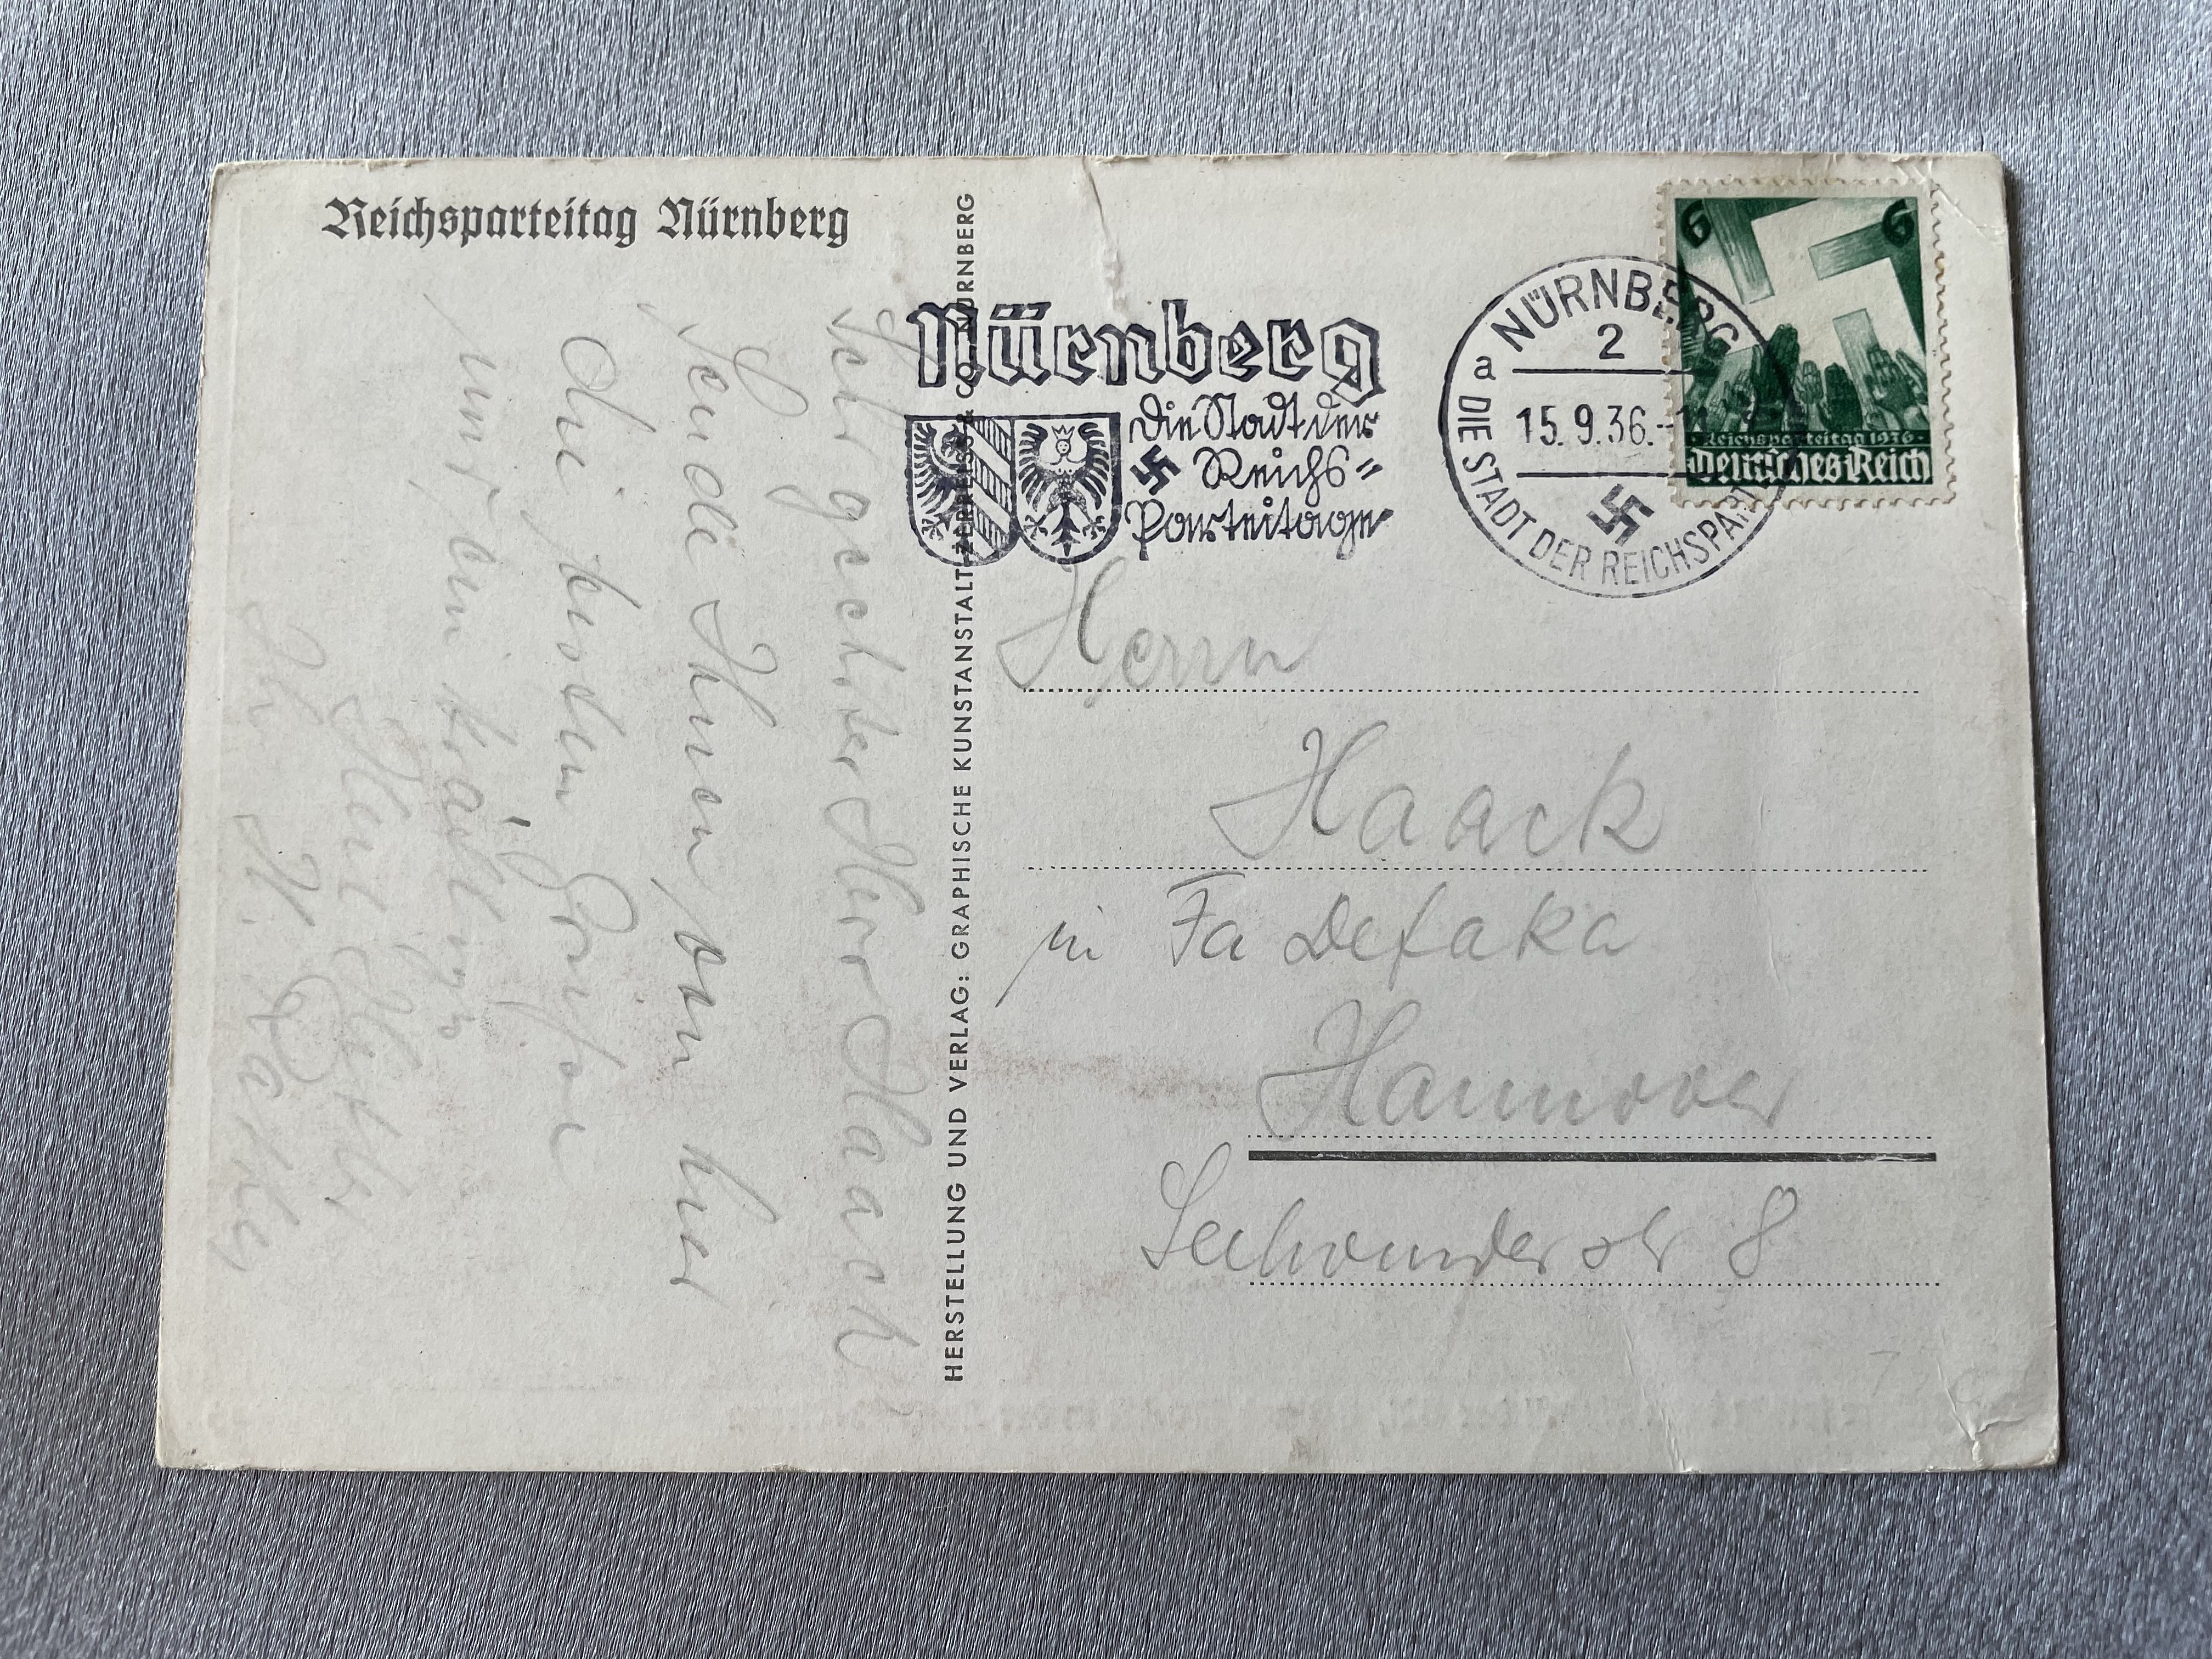 Reichsparteitag Nürnberg
Sehr geehrter Herr Haack
Sende Ihnen, von hier
die Grüße
mit
Heil Hitler
Ihr H.
HERSTELLUNG UND VERLAG: GRAPHISCHE KUNSTANSTALT ZERREISS & CO. NÜRNBERG
Nürnberg
Die Stadt der
Reichs=
Parteitage
NÜRNBERG
2
a
15.9.36.-
DIE STADT DER REICHSPART
6 6
Reichsparteitag 1936
Deutsches Reich
Herrn
Haack
in Fa Defaka
Hannover
str 8